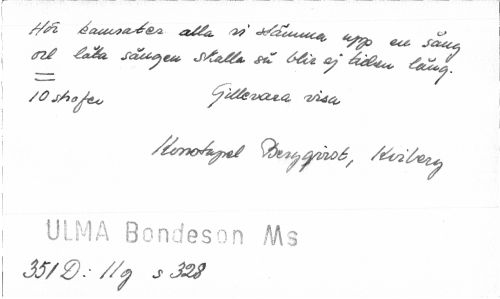 Hör kamrater alla vi stämma upp en sång
och låta sången skalla så blir ej tiden lång.
10 strofer Gillevara visa
Konstapel Bergqvist, Kviberg
ULMA Bondeson Ms
351 D: 11g s 328